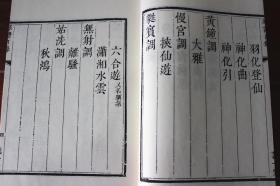 羽化登仙
神化曲
神化引
黃鍾調
大雅
慢宮調
挾仙遊
蕤賓調
六合遊
瀟湘水雲
無射調
離騷
姑洗調
秋鴻